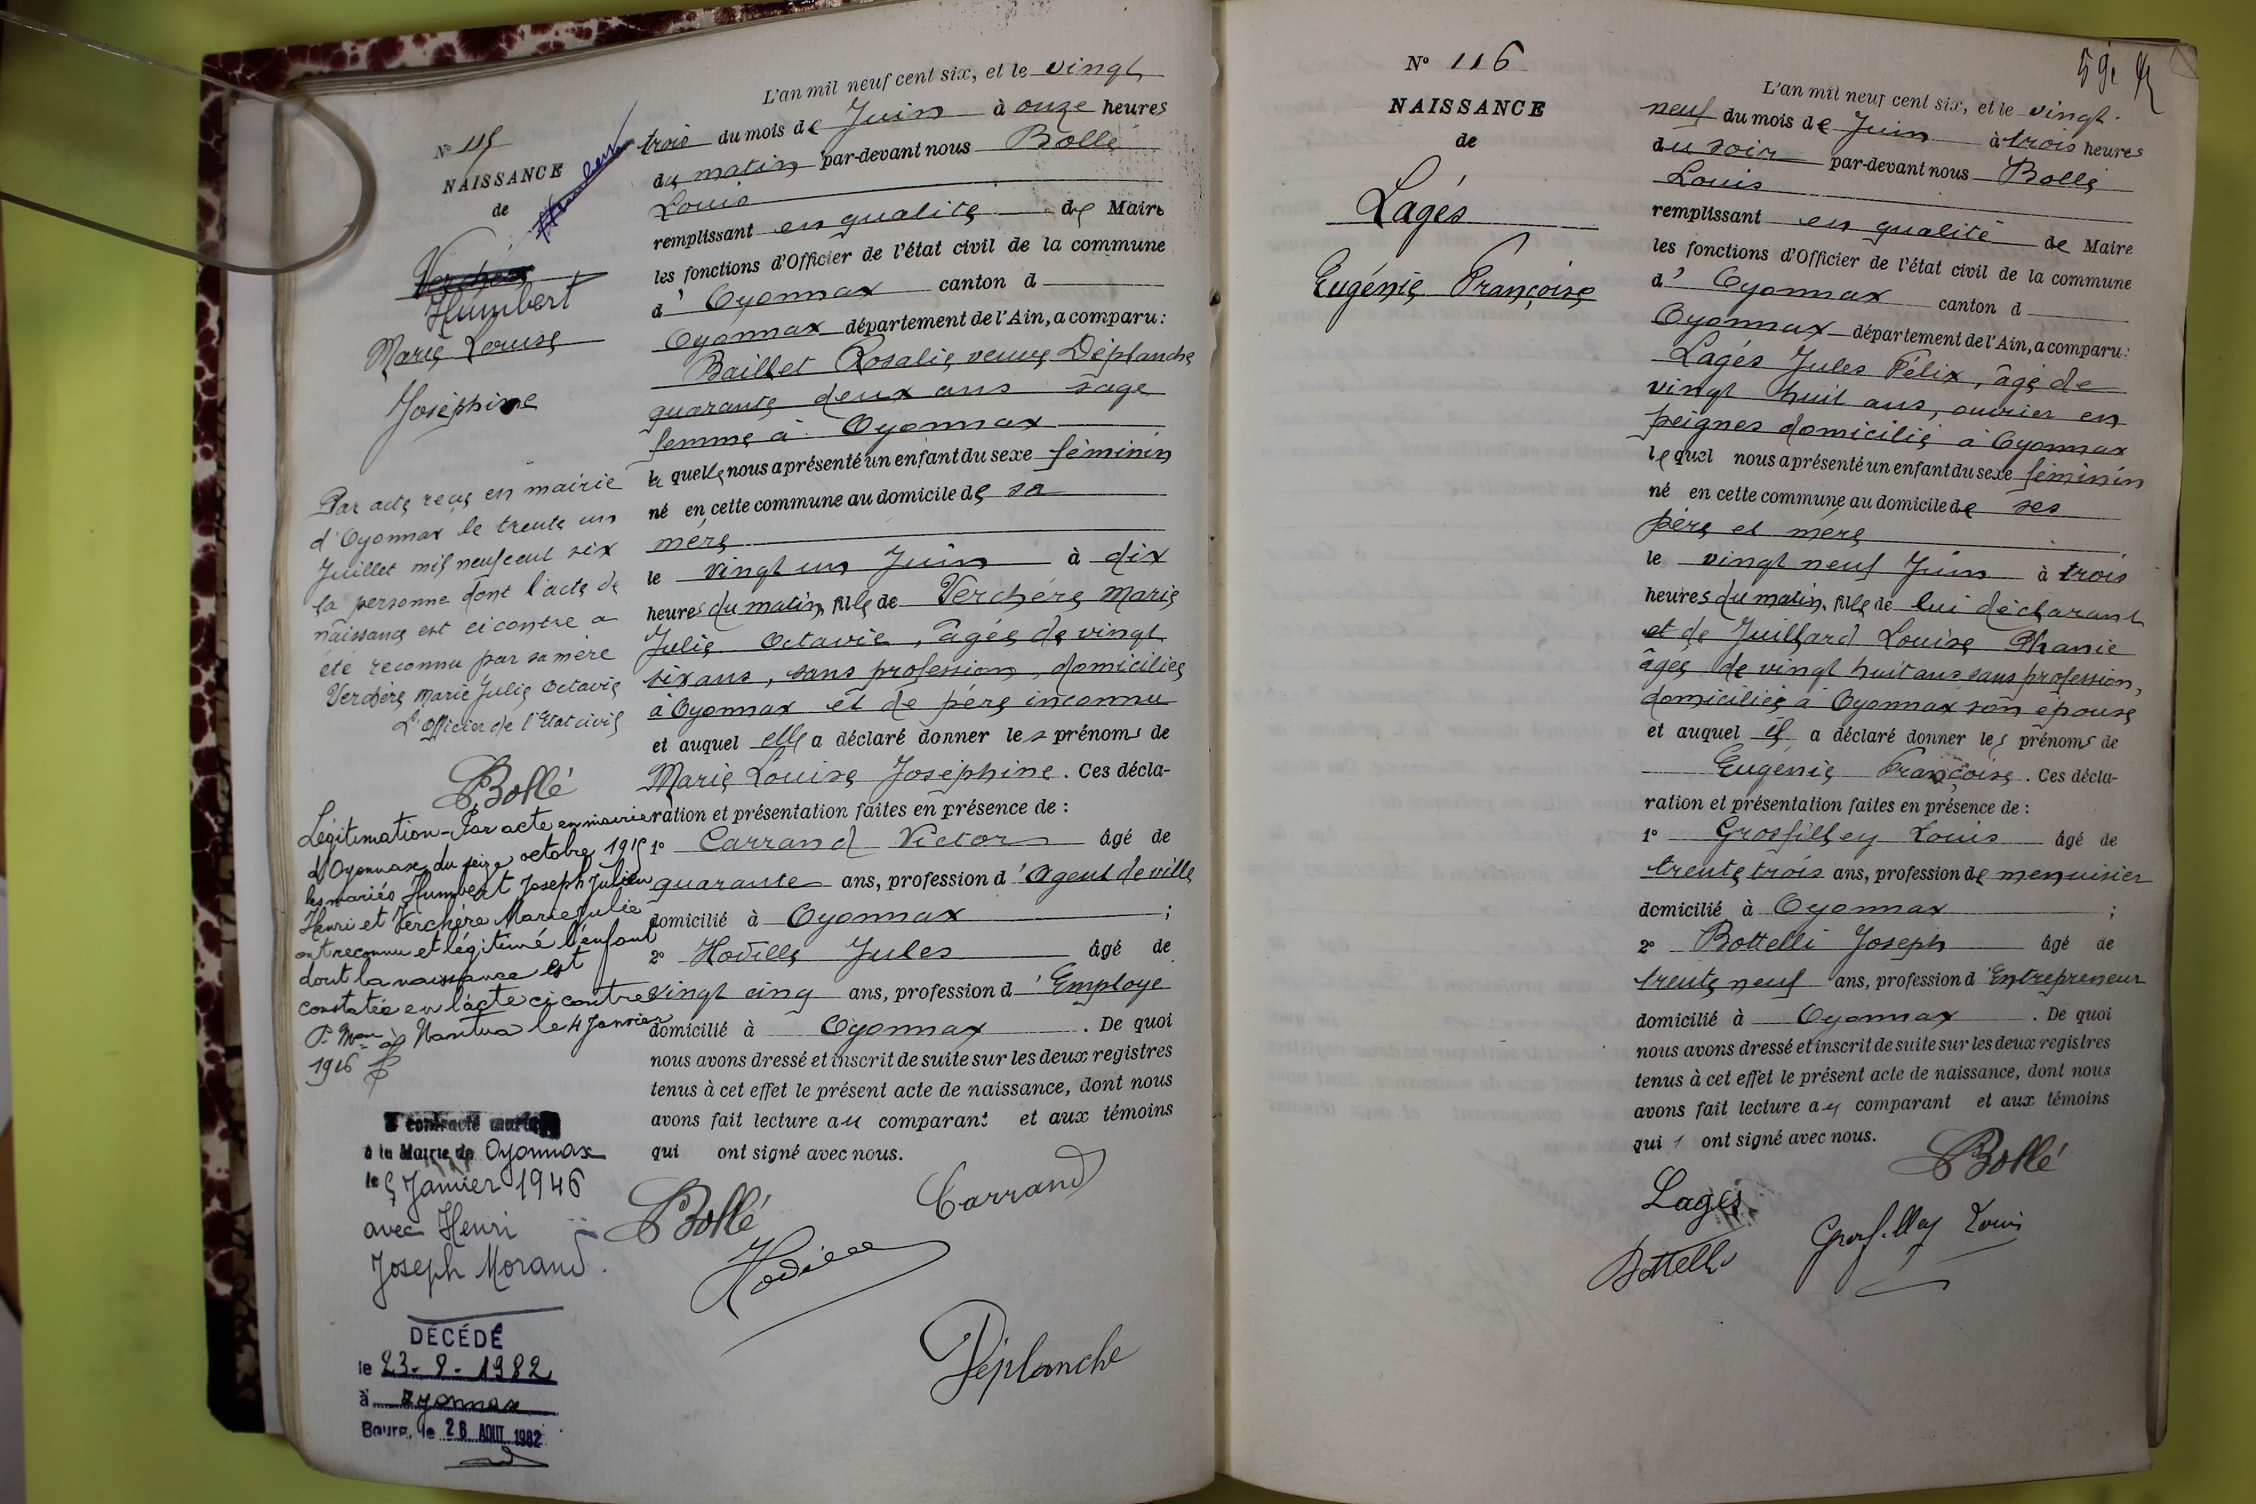 N° 115
NAISSANCE
de
Humbert
Marie Louise
Joséphine
Par acte reçu en mairie
d'Oyonnax le trente un
Juillet mil neuf cent six
la personne dont l'acte de
naissance est ci contre a
été reconnu par sa mère
Verchère Marie Julie Octavie
L'Officier de l'Etat civil
Bollé
Légitimation - Par acte en mairie
d'Oyonnax du seize octobre 1915
les mariés Humbert Joseph Julien
Henri et Verchère Marie Julie
ont reconnu et légitimé l'enfant
dont la naissance est
constatée en l'acte ci contre
à Nantua le 4 Janvier
1916
a contracté mariage
à la Mairie de Oyonnax
le 5 Janvier 1946
avec Henri
Joseph Morand.
DÉCÉDÉ
le 23-8-1982
à Oyonnax
Bourg, le 26 AOUT 1982
L'an mil neuf cent six, et le vingt
trois du mois de Juin à onze heures
du matin par-devant nous Bollé
Louis
remplissant en qualité de Maire
les fonctions d'Officier de l'état civil de la commune
d' Oyonnax canton d
Oyonnax département de l'Ain, a comparu:
Baillet Rosalie veuve Déplanche
quarante deux ans sage
femme à Oyonnax
la quelle nous a présenté un enfant du sexe féminin
né en cette commune au domicile de sa
mère
le vingt un Juin à dix
heures du matin, fille de Verchére Marie
Julie Octavie, âgée de vingt
six ans, sans profession, domiciliée
à Oyonnax et de père inconnu
et auquel elle a déclaré donner les prénoms de
Marie Louise Joséphine. Ces décla-
ration et présentation faites en présence de :
1° Carrand Victor âgé de
quarante ans, profession d'Agent de ville
domicilié à Oyonnax ;
2° Hodille Jules âgé de
vingt cinq ans, profession d'Employé
domicilié à Oyonnax. De quoi
nous avons dressé et inscrit de suite sur les deux registres
tenus à cet effet le présent acte de naissance, dont nous
avons fait lecture au comparant et aux témoins
qui ont signé avec nous.
Bollé Carrand
Hodille
Déplanche
59e
N° 116
NAISSANCE
de
Lagés
Eugénie Françoise
L'an mil neuf cent six, et le vingt-
neuf du mois de Juin à trois heures
du soir par-devant nous Bollé
Louis
remplissant en qualité de Maire
les fonctions d'Officier de l'état civil de la commune
d' Oyonnax canton d
Oyonnax département de l'Ain, a comparu:
Lagés Jules Félix, âgé de
vingt huit ans, ouvrier en
peignes domicilié à Oyonnax
lequel nous a présenté un enfant du sexe féminin
né en cette commune au domicile de ses
père et mère
le vingt neuf Juin à trois
heures du matin, fille de lui déclarant
et de Juillard Louise Phanie
âgée de vingt huit ans sans profession,
domiciliée à Oyonnax son épouse
et auquel il a déclaré donner les prénoms de
Eugénie Françoise. Ces décla-
ration et présentation faites en présence de :
1° Grosfilley Louis âgé de
trente trois ans, profession de menuisier
domicilié à Oyonnax ;
2° Bottelli Joseph âgé de
trente neuf ans, profession d'Entrepreneur
domicilié à Oyonnax. De quoi
nous avons dressé et inscrit de suite sur les deux registres
tenus à cet effet le présent acte de naissance, dont nous
avons fait lecture au comparant et aux témoins
qui ont signé avec nous.
Bollé
Lagés
Grosfilley Louis
Bottelli